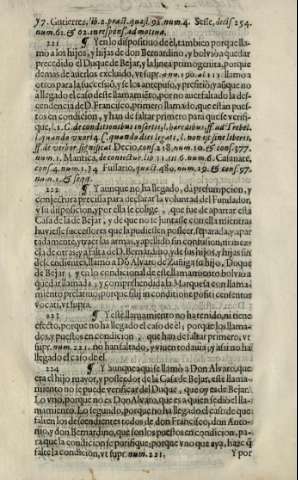 57. Gutierrez, lib. 2. pract. quæst. 92. num. 4. Sesse, decis. 254.
num. 62. & 63. in respons. ad motiua.
221 ¶ Y en lo dispositiuo del, tampoco porque llamò
a los hijos, y hijas de don Bernardino, y no bolviò a quedar
precedido el Duque de Bejar, y la linea primogenita, porque
demas de auerlos excluido, vt supr. ann. 190. al 213. llamò a
otros para la succession, y se los antepuso, y prefiriò, y assi que no
à llegado el caso deste llamamiento, por no auer faltado la descendencia
de D. Francisco, primero llamado, que estàn puestos
en condicion, y han de faltar primero para que se verifique,
l. 1. C. de conditionibus insertis, l. liberatibus, ff. ad Trebel.
l. quando quarta §. quando dies legati, l. non est sine liberis,
ff. de verbor. significat Decio, cons. 238. num. 10. & cons. 277.
num. 1. Mantica, de coniectur. lib. 11. tit. 6. num. 6. Casanate,
cons. 4. num. 134 Fusario, quæst. 480. num. 29. & cons. 97.
num. 1. & seqq.
222 ¶ Y aunque no ha llegado, dà presumpcion, y
conjectura precisa para declarar la voluntad del Fundador,
y su disposicion, y por ella se colige, que fue de apartar esta
Casa de la de Bejar, y de que no se juntasse con ella mientras
huviesse successores que la pudiessen posseer, separada, y apartadamente,
y traer las armas, y apellido sin confusion, ni mezcla
de otras, y a falta de D. Bernardino, y de sus hijos, y hijas sin
descendientes, llamò a Dõ Alvaro de Zuñiga su hijo, Duque
de Bejar, y en lo condicional de este llamamiento bolviò a
quedar llamada, y comprehendida la Marquesa con llamamiento
preciso, porque filij in conditione positi censentur
vocati, vt supra.
223 ¶ Y este llamamiento no ha tenido, ni tiene
efecto, porque no ha llegado el caso de èl, porque los llamados,
y puestos en condicion, que han de faltar primero, vt
supr. num. 221. no han faltado, y viuen todauia, y assi no ha
llegado el caso de èl.
224 ¶ Y aunque aqui se llamò a Don Alvaro, que
era el hijo mayor, y posseedor de la Casa de Bejar, este llamamiento
no se puede verificar del Duque, que oy es de Bejar.
Lo vno, porque no es Don Alvaro, que es a quien se diò el llamamiento.
Lo segundo, porque no ha llegado el caso de que
falten los descendientes todos de don Francisco, don Antonio,
y don Bernardino, que son los puestos en condicion, para
que la condicion se purifique, porque vno que aya, haze q̃
falte la condicion, vt supr. num. 221.
Y por